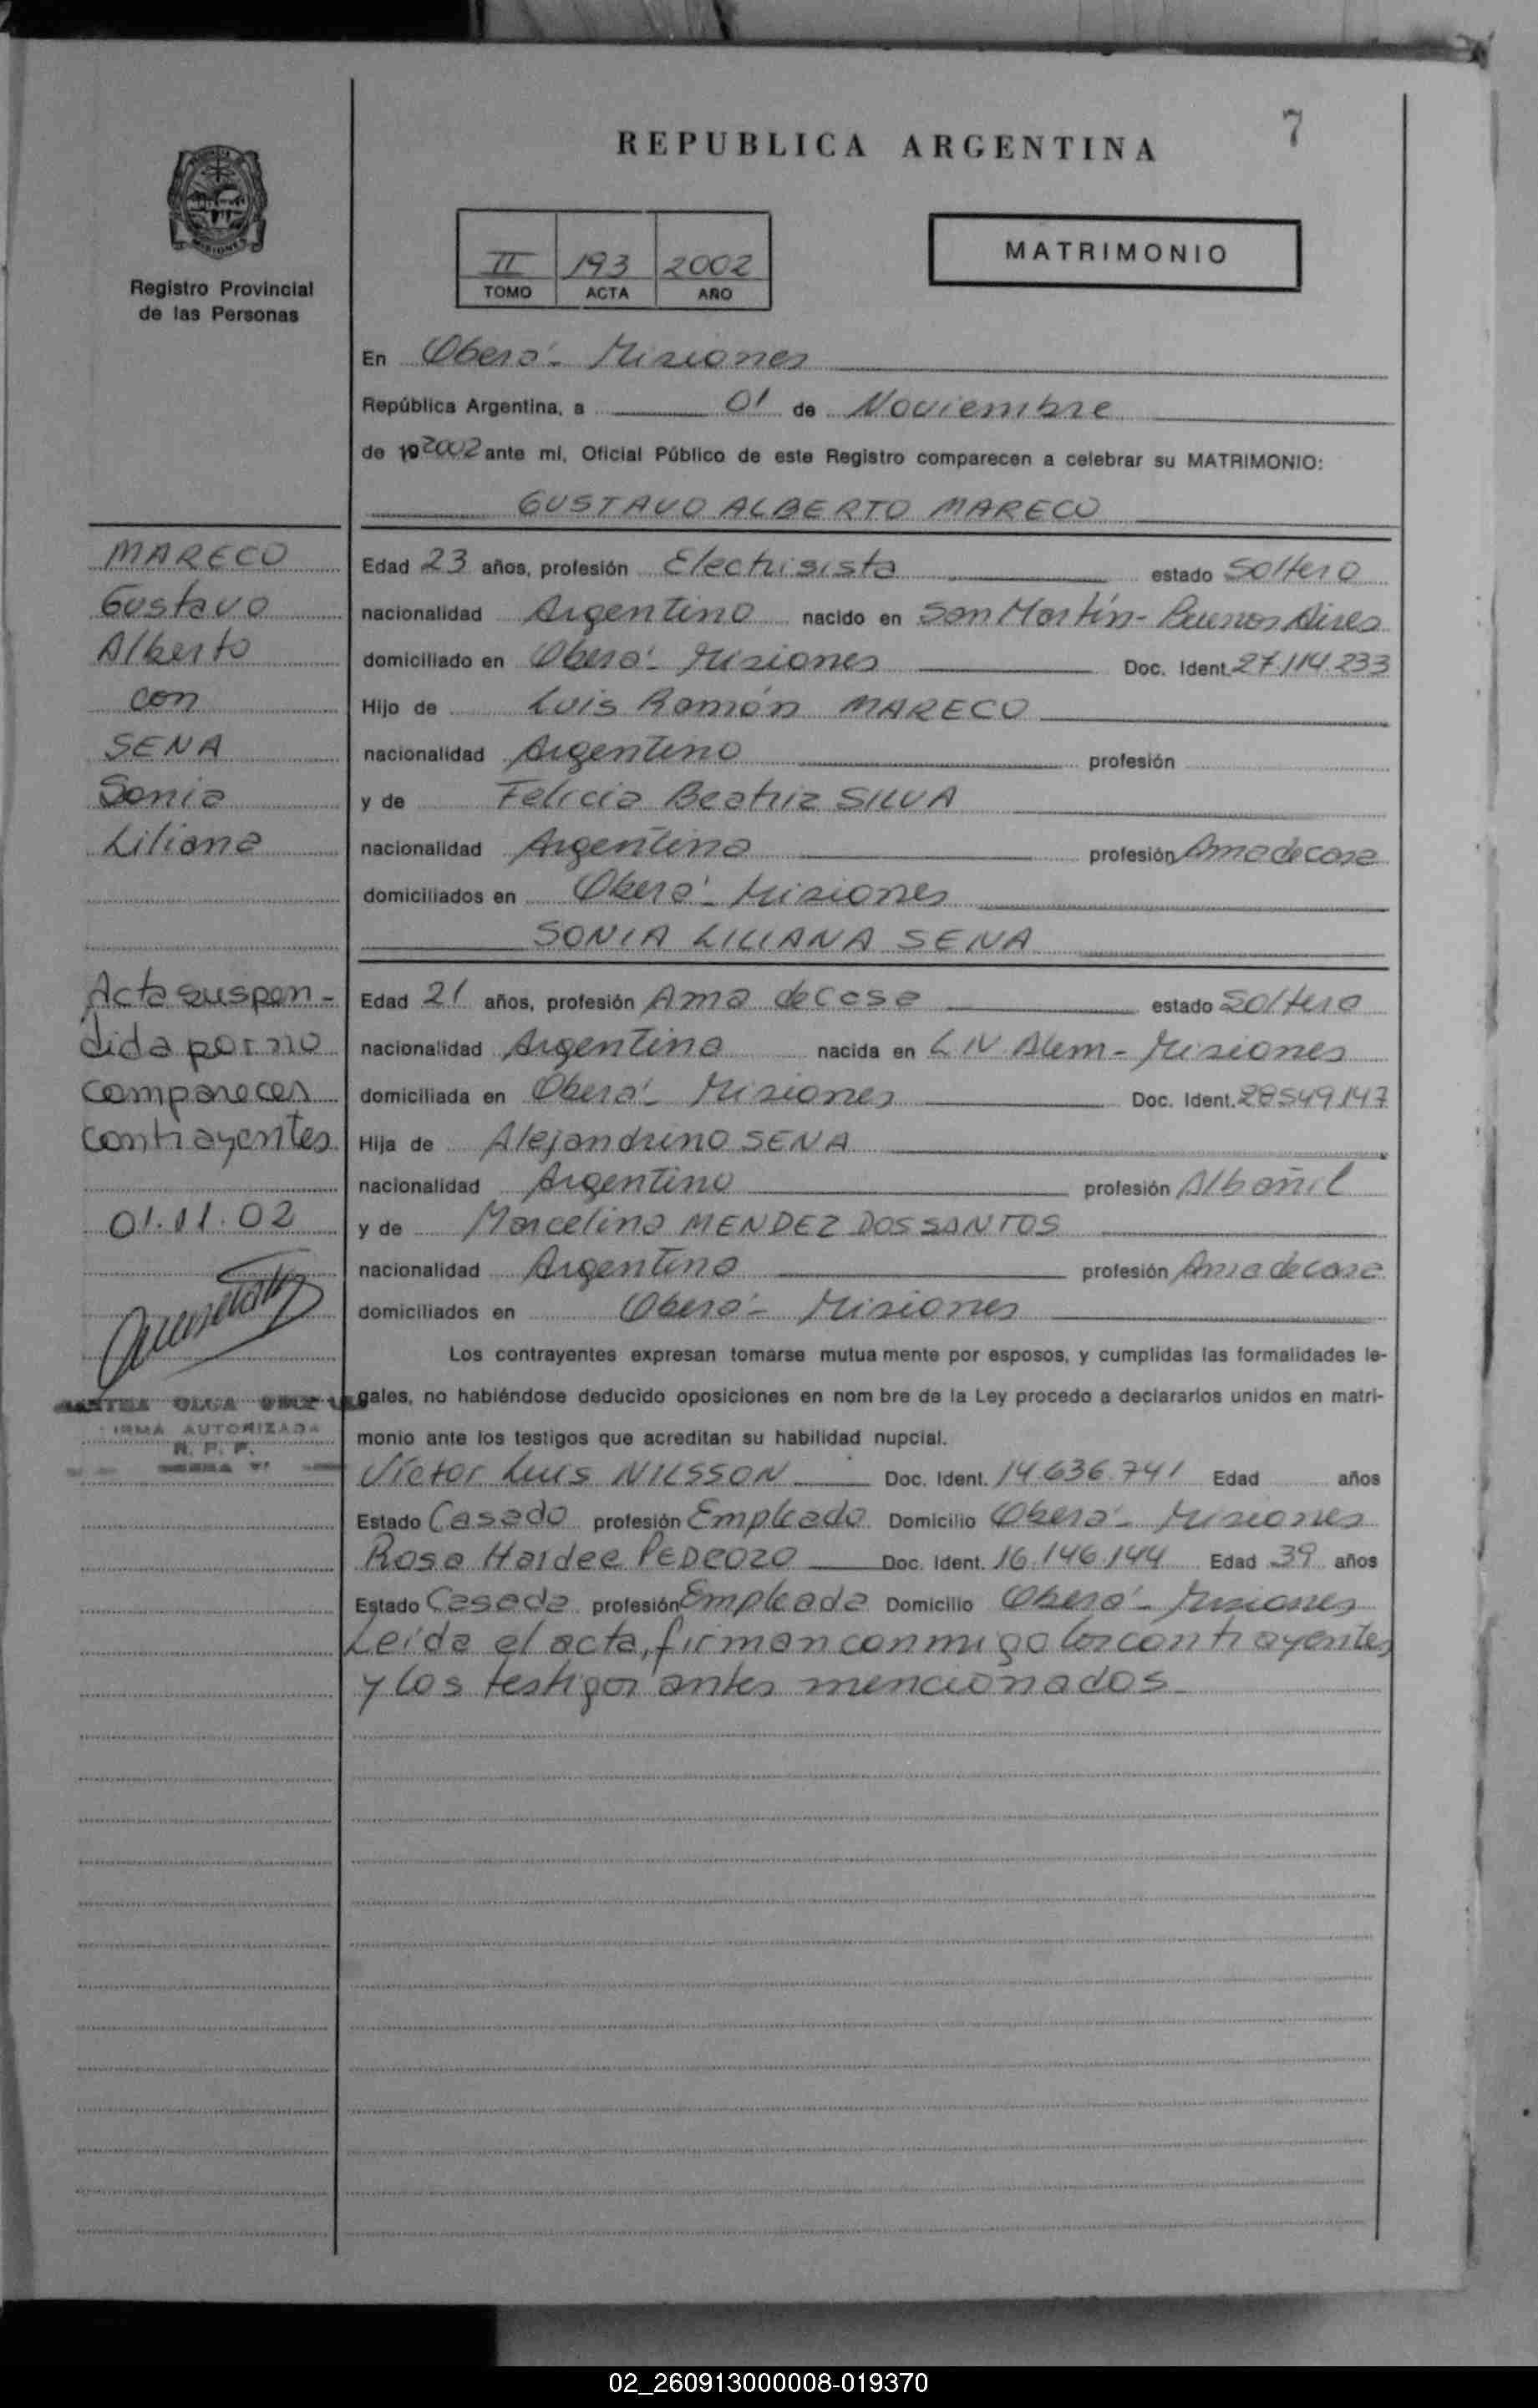 7
REPUBLICA ARGENTINA
MISIONES
Registro Provincial
de las Personas
II 193 2002
TOMO ACTA AÑO
MATRIMONIO
En Oberá - Misiones
República Argentina, a 01 de Noviembre
de 192002 ante mí, Oficial Público de este Registro comparecen a celebrar su MATRIMONIO:
GUSTAVO ALBERTO MARECO
MARECO
Gustavo
Alberto
con
SENA
Sonia
Liliana
Edad 23 años, profesión Electrisista estado Soltero
nacionalidad Argentino nacido en San Martín - Buenos Aires
domiciliado en Oberá - Misiones Doc. Ident. 27.114.233
Hijo de Luis Ramón MARECO
nacionalidad Argentino profesión
y de Felicia Beatriz SILVA
nacionalidad Argentina profesión Ama de casa
domiciliados en Oberá - Misiones
SONIA LILIANA SENA
Acta suspen-
dida por no
comparecer
contrayentes
01.11.02
Edad 21 años, profesión Ama de casa estado Soltera
nacionalidad Argentina nacida en L N Alem - Misiones
domiciliada en Oberá - Misiones Doc. Ident. 28549147
Hija de Alejandrino SENA
nacionalidad Argentino profesión Albañil
y de Marcelina MENDEZ DOS SANTOS
nacionalidad Argentina profesión Ama de casa
domiciliados en Oberá - Misiones
Los contrayentes expresan tomarse mutua mente por esposos, y cumplidas las formalidades le-
gales, no habiéndose deducido oposiciones en nom bre de la Ley procedo a declararlos unidos en matri-
monio ante los testigos que acreditan su habilidad nupcial.
OLGA
FIRMA AUTORIZADA
R. P. P.
Víctor Luis NILSSON Doc. Ident. 14.636.741 Edad años
Estado Casado profesión Empleado Domicilio Oberá - Misiones
Rosa Haidee PEDROZO Doc. Ident. 16.146.144 Edad 39 años
Estado Casada profesión Empleada Domicilio Oberá - Misiones
Leída el acta, firman conmigo los contrayentes
y los testigos antes mencionados
02_260913000008-019370